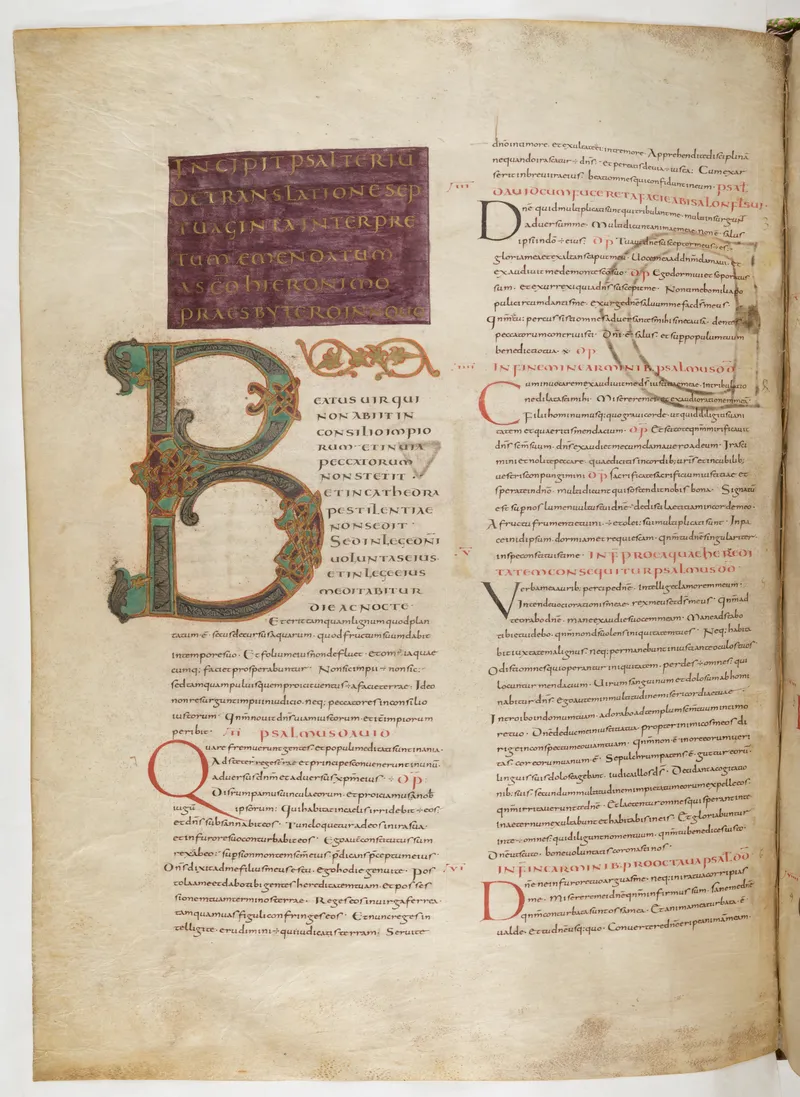 INCIPIT PSALTERIU
DE TRANSLATIONE SEP
TUAGINTA INTERPRE
TUM EMENDATUM
A SCO HIERONIMO
PRAESBYTERO IN NOUO
BEATUS UIR QUI
NON ABIIT IN
CONSILIO IMPIO
RUM ET IN UIA
PECCATORUM
NON STETIT
ET IN CATHEDRA
PESTILENTIAE
NON SEDIT
SED IN LEGE DNI
UOLUNTAS EIUS
ET IN LEGE EIUS
MEDITABITUR
DIE AC NOCTE
Et erit tamquam lignum quod plan
tatum ÷ secus decursus aquarum quod fructum suum dabit
in tempore suo Et folium eius non defluet et om̄ia quae
cumq; faciet prosperabuntur Non sic impii non sic
sed tamquam puluis quem proicit uentus a facie terrae Ideo
non resurgunt impii in iudicio neq; peccatores in consilio
iustorum Qnm nouit dns uiam iustorum et iter impiorum
peribit II PSALMUS DAUID
Quare fremuerunt gentes et populi meditati sunt inania
Adstiterunt reges terrae et principes conuenerunt in unu
aduersus dnm et aduersus xpm eius
Disrumpamus uincula eorum et proiciamus a nob
iugu ipsorum Qui habitat in caelis irridebit eos
et dns subsannabit eos Tunc loquetur ad eos in ira sua
et in furore suo conturbabit eos Ego aut constitutus sum
rex ab eo sup sion montem scm eius pdicans pceptum eius
Dns dixit ad me filius meus es tu ego hodie genui te Pos
tula a me et dabo tibi gentes hereditatem tuam et posses
sionem tuam terminos terrae Reges eos in uirga ferrea
tamquam uas figuli confringes eos Et nunc reges in
tellegite erudimini qui iudicatis terram Seruite
dno in timore et exultate ei in tremore Apprehendite disciplinā
nequando irascatur dns et pereatis de uia iusta Cum exar
serit in breui ira eius beati omnes qui confidunt in eum PSAL
III DAUID CUM FUGERET A FACIE ABISALON FILII SUI
Dne quid multiplicati sunt qui tribulant me multi insurgunt
aduersum me Multi dicunt animae meae non ÷ salus
ipsi in do eius Tu aut dne susceptor meus es
gloria mea et exaltans caput meu Uoce mea ad dnm clamaui et
exaudiuit me de monte sco suo Ego dormiui et soporatus
sum et exurrexi quia dns suscepit me Non timebo milia po
puli circumdantis me exurge dne saluum me fac ds meus
Qnm tu percussisti omnes aduersantes mihi sine causa dentes
peccatorum contriuisti Dni ÷ salus et sup populum tuum
benedictio tua
IIII IN FINEM IN CARMINIB; PSALMUS DD
Cum inuocarem exaudiuit me ds iustitiae meae in tribulatio
ne dilatasti mihi Miserere mei et exaudi orationem mea
Filii hominum usq; quo graui corde ut quid diligitis uani
tatem et quaeritis mendacium Et scitote qnm mirificauit
dns scm suum dns exaudiet me cum clamauero ad eum Irasci
mini et nolite peccare quae dicitis in cordib; uris et in cubilib;
uestris conpungimini Sacrificate sacrificium iustitiae et
sperate in dno multi dicunt quis ostendit nobis bona Signatu
est sup nos lumen uultus tui dne dedisti laetitiam in corde meo
A fructu frumenti uini et olei sui multiplicati sunt In pa
ce in idipsum dormiam et requiescam qnm tu dne singulariter
in spe constituisti me V IN F PRO EA QUAE HEREDI
TATEM CONSEQUITUR PSALMUS DD
Uerba mea aurib; percipe dne intellege clamorem meum
Intende uoci orationis meae rex meus et ds meus Qnm ad
te orabo dne mane exaudies uocem meam Mane adstabo
tibi et uidebo qnm non ds uolens iniquitatem tu es Neq; habita
bit iuxta te malignus neq; permanebunt iniusti ante oculos tuos
Odisti omnes qui operantur iniquitatem perdes omnes qui
locuntur mendacium Uirum sanguinum et dolosum abhomi
nabitur dns Ego autem in multitudine misericordiae tuae
Introibo in domum tuam adorabo ad templum scm tuum in timo
re tuo Dne deduc me in iustitia tua propter inimicos meos di
rige in conspectu meo uiam tuam Qnm non ÷ in ore eorum ueri
tas cor eorum uanum ÷ Sepulchrum patens ÷ guttur eoru
linguis suis dolose agebant iudica illos ds Decidant a cogitatio
nib; suis secundum multitudinem impietatum eorum expelle eos
qnm irritauerunt te dne Et laetentur omnes qui sperant in te
in aeternum exultabunt et habitabis in eis Et gloriabuntur
in te omnes qui diligunt nomen tuum qnm tu benedices iusto
Dne ut scuto bonae uoluntatis coronasti nos
VI IN F IN CARMINIB; PRO OCTAUA PSAL DD
Dne ne in furore tuo arguas me neq; in ira tua corripias
me Miserere mei dne qnm infirmus sum sana me dne
qnm conturbata sunt ossa mea Et anima mea turbata ÷
ualde et tu dne usq; quo Conuertere dne eripe animam meam